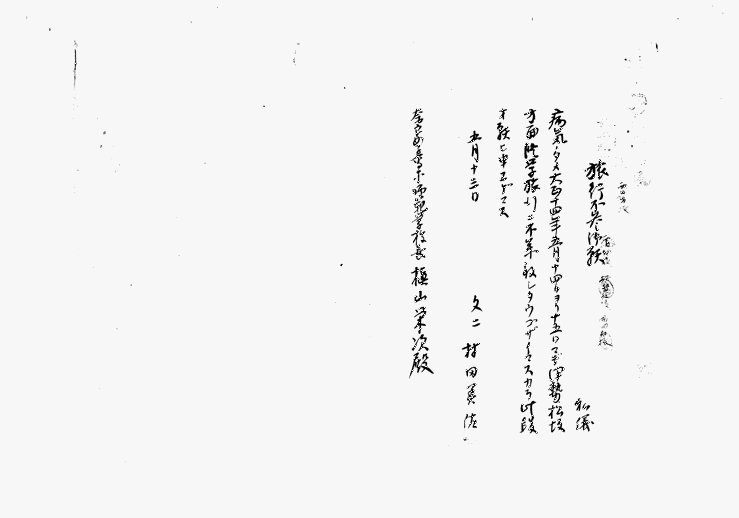 旅行不参御願
私儀
病気ノタメ大正十四年五月十四日ヨリ十五日マデ伊勢松坂
方面修学旅行ニ不参致シタウゴザイマスカラ此段
御願ヒ申上ゲマス
五月十三日
文二 村田
奈良女子高等師範学校長 槇山栄次殿